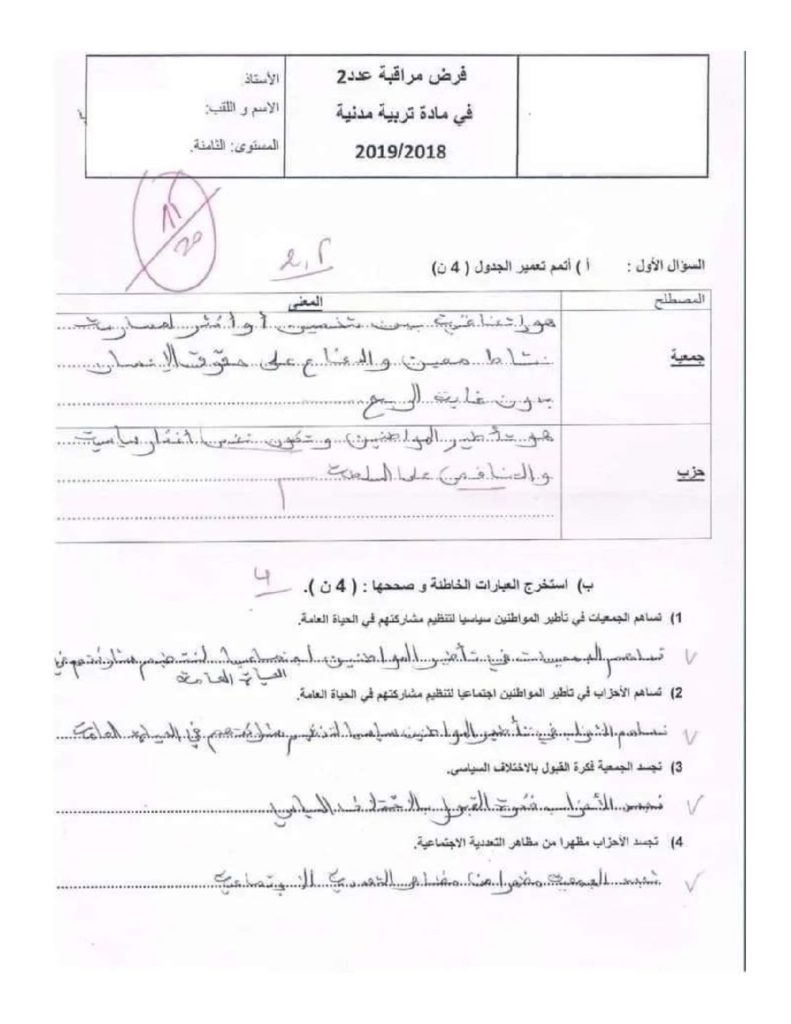 فرض مراقبة عدد2
في مادة تربية مدنية
2019/2018
الأستاذ:
الاسم و اللقب:
المستوى: الثامنة.
11
20
السؤال الأول : أ ) أتمم تعمير الجدول ( 4 ن)
المصطلح المعنى
جمعية
هو اتفاقية بين شخصين أو أكثر لممارسة
نشاط معين والدفاع على حقوق الإنسان
بدون غاية الربح
حزب
هو تأطير المواطنين وتكون نفس أفكار سياسية
والتنافس على السلطة
ب) استخرج العبارات الخاطئة و صححها : ( 4 ن ). 4
1) تساهم الجمعيات في تأطير المواطنين سياسيا لتنظيم مشاركتهم في الحياة العامة.
تساهم الجمعيات في تأطير المواطنين اجتماعيا لتنظيم مشاركتهم في
الحياة العامة
2) تساهم الأحزاب في تأطير المواطنين اجتماعيا لتنظيم مشاركتهم في الحياة العامة.
تساهم الأحزاب في تأطير المواطنين سياسيا لتنظيم مشاركتهم في الحياة العامة
3) تجسد الجمعية فكرة القبول بالاختلاف السياسي.
تجسد الأحزاب فكرة القبول بالاختلاف السياسي
4) تجسد الأحزاب مظهرا من مظاهر التعددية الاجتماعية.
تجسد الجمعية مظهرا من مظاهر التعددية الاجتماعية